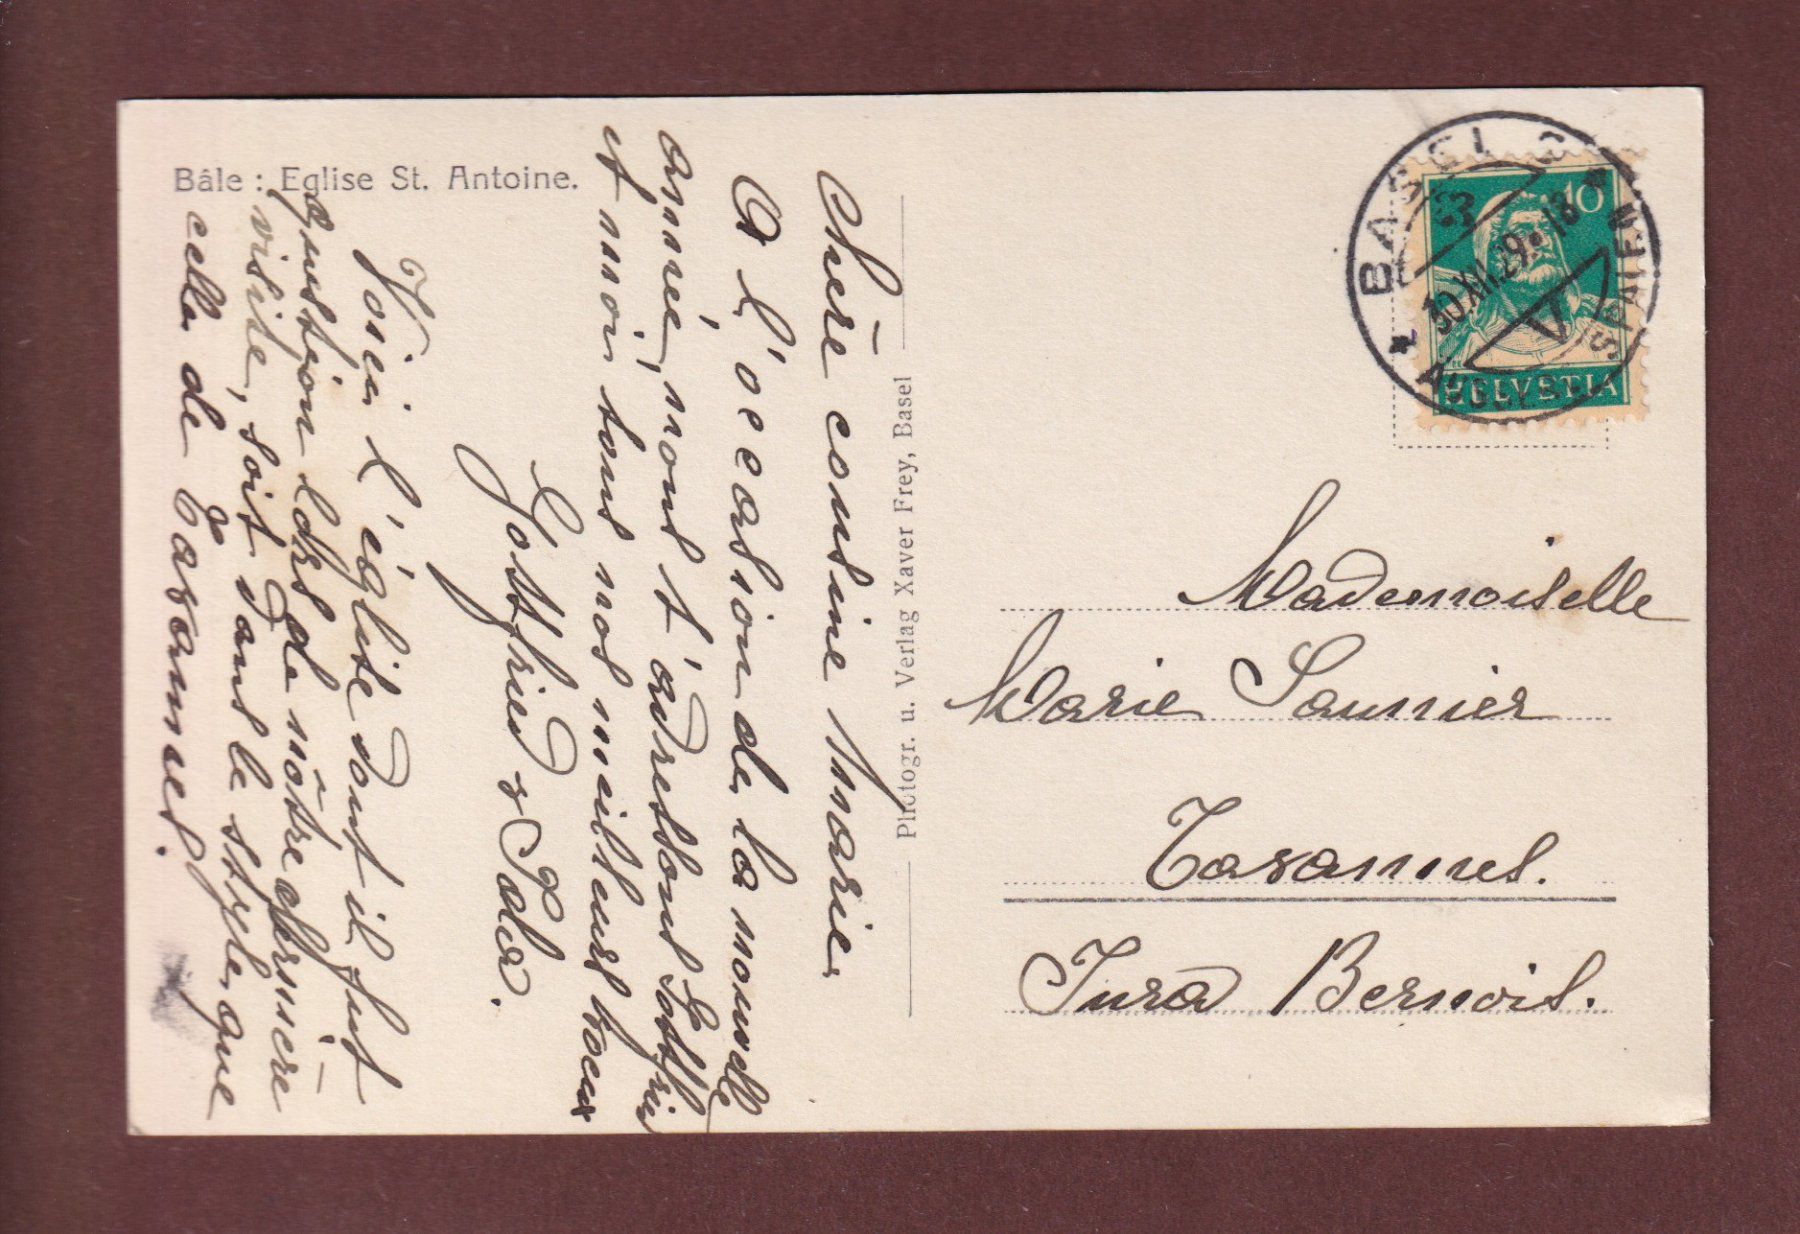 Bâle : Eglise St. Antoine.
Chère cousine Marie
A l'occasion de la nouvelle
année, nous t'adressons Gottfried
et moi tous nos meilleurs voeux
Gottfried &
Voici l'église dont il fut
question lors de nôtre dernière
visite, soit dans le style que
celle de Tavannes.
Photogr. u. Verlag Xaver Frey, Basel
BASEL 3
30.XII.29.-18
V
AUGUST SPALEN
10
HELVETIA
Mademoiselle
Marie Saunier
Tavannes.
Jura Bernois.